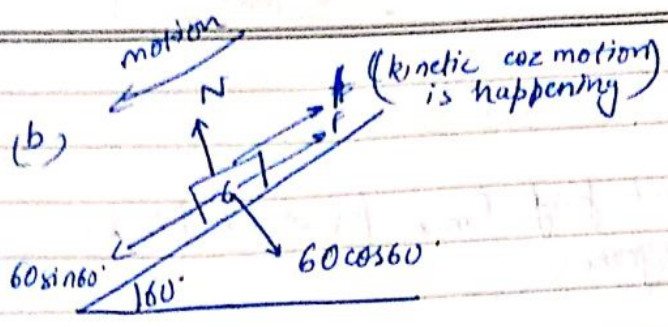 motion
(kinetic coz motion
is happening)
(b)
N
f
6
60sin60°
60cos60°
60°